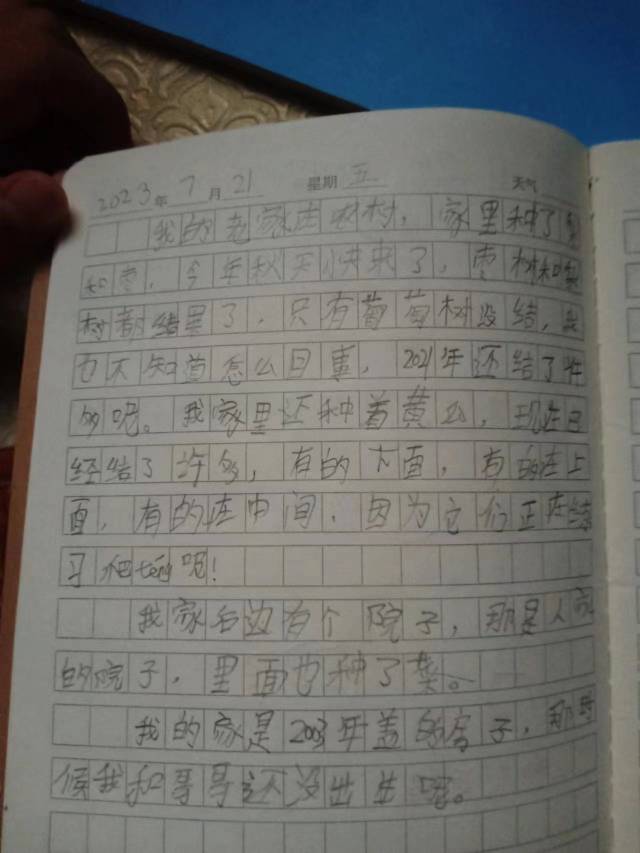 2023年7月21 星期五 天气
我的老家在农村，家里种了梨
和枣，今年秋天快来了，枣树和梨
树都结果了，只有葡萄树没结，我
也不知道怎么回事，2021年还结了许
多呢。我家里还种着黄瓜，现在已
经结了许多，有的下面，有的在上
面，有的在中间，因为它们正在练
习把场呢！
我家右边有个院子，那是人家
的院子，里面也种了菜。
我的家是2003年盖的房子，那时
候我和哥哥还没出生呢。